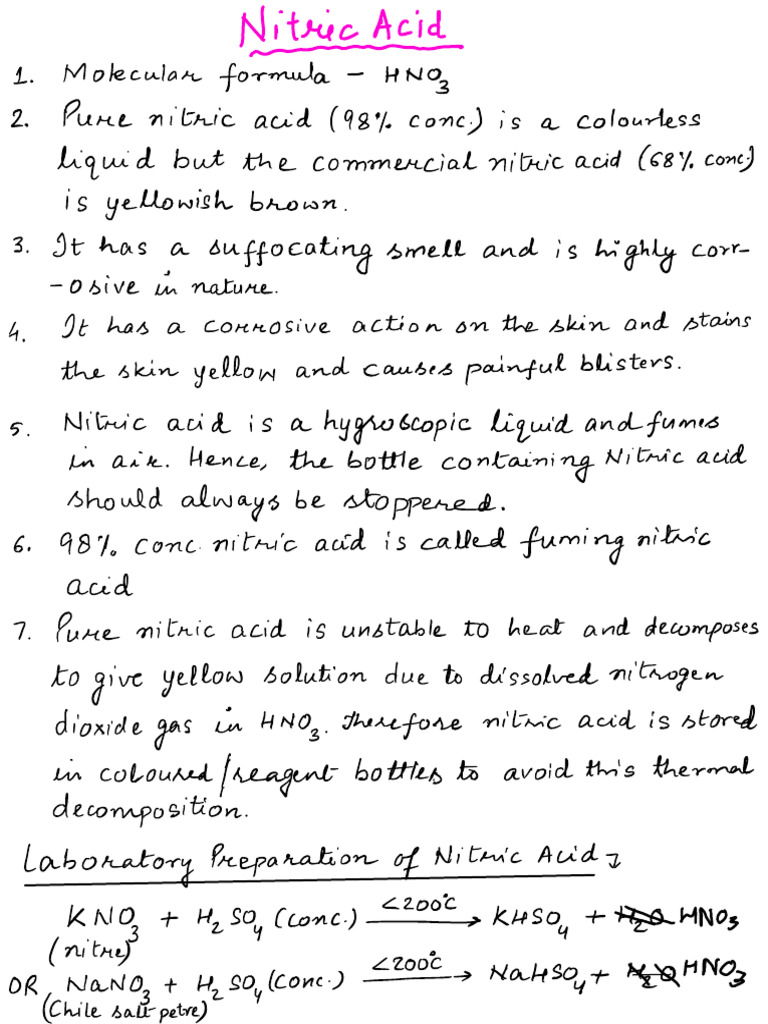 Nitric Acid
1. Molecular formula – HNO₃
2. Pure nitric acid (98% conc.) is a colourless
liquid but the commercial nitric acid (68% conc.)
is yellowish brown.
3. It has a suffocating smell and is highly corr-
-osive in nature.
4. It has a corrosive action on the skin and stains
the skin yellow and causes painful blisters.
5. Nitric acid is a hygroscopic liquid and fumes
in air. Hence, the bottle containing Nitric acid
should always be stoppered.
6. 98% conc. nitric acid is called fuming nitric
acid
7. Pure nitric acid is unstable to heat and decomposes
to give yellow solution due to dissolved nitrogen
dioxide gas in HNO₃. Therefore nitric acid is stored
in coloured/reagent bottles to avoid this thermal
decomposition.
Laboratory Preparation of Nitric Acid :
KNO₃ + H₂SO₄ (conc.) <200°C → KHSO₄ + H₂O HNO₃
(nitre)
OR NaNO₃ + H₂SO₄ (conc.) <200°C → NaHSO₄ + H₂O HNO₃
(Chile salt petre)